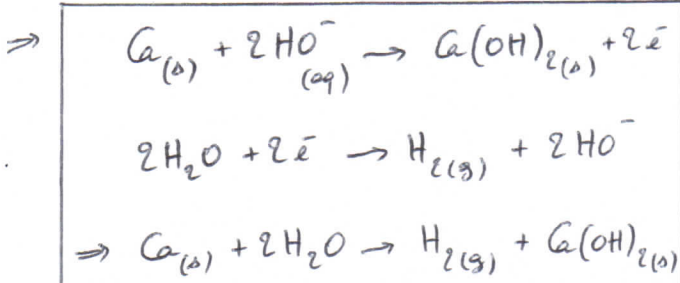 ⇒ Ca(s) + 2HO⁻(aq) → Ca(OH)₂(s) + 2ē
2H₂O + 2ē → H₂(g) + 2HO⁻
⇒ Ca(s) + 2H₂O → H₂(g) + Ca(OH)₂(s)